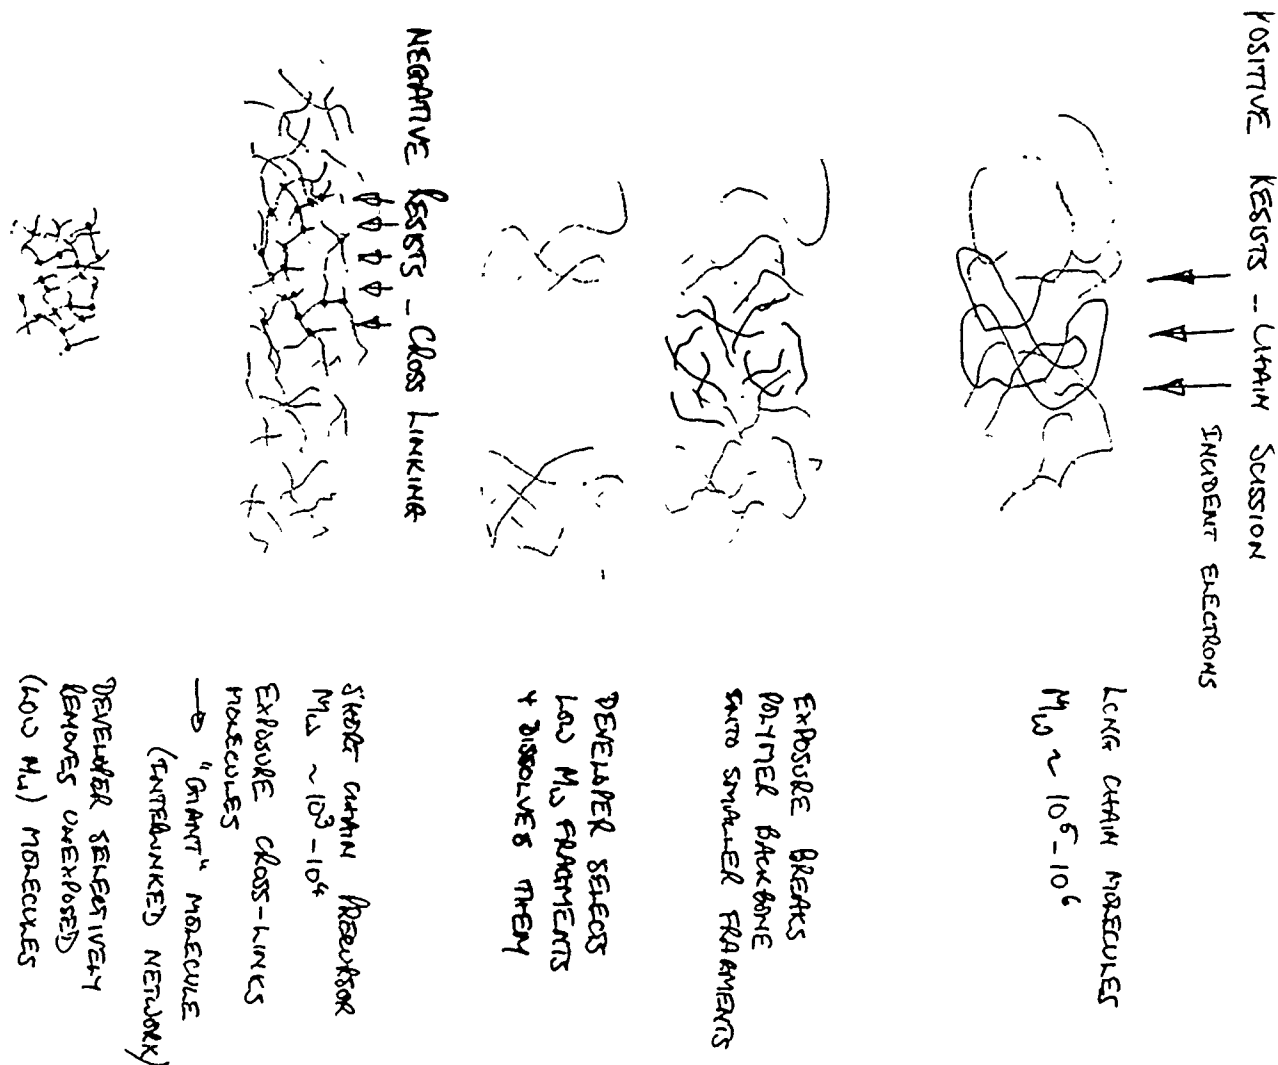 POSITIVE RESISTS - CHAIN SCISSION
INCIDENT ELECTRONS
LONG CHAIN MOLECULES
Mw ~ 10⁵-10⁶
EXPOSURE BREAKS
POLYMER BACKBONE
INTO SMALLER FRAGMENTS
DEVELOPER SELECTS
LOW Mw FRAGMENTS
+ DISSOLVES THEM
NEGATIVE RESISTS - CROSS LINKING
SHORT CHAIN PRECURSOR
Mw ~ 10³-10⁴
EXPOSURE CROSS-LINKS
MOLECULES
→ "GIANT" MOLECULE
(INTERLINKED NETWORK)
DEVELOPER SELECTIVELY
REMOVES UNEXPOSED
(LOW Mw) MOLECULES